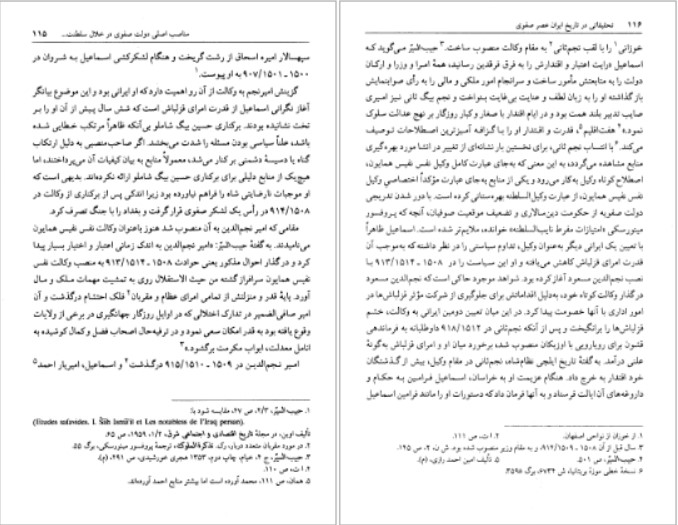 مناصب اصلی دولت صفوی در خلال سلطنت... ۱۱۵
سپهسالار امیره اسحاق از رشت گریخت و هنگام لشکرکشی اسماعیل به شروان در
۱۵۰۰ ـ ۹۰۷/۱۵۰۱ به او پیوست.۱
گزینش امیرنجم به وکالت از آن رو اهمیت دارد که او ایرانی بود و این موضوع بیانگر
آغاز نگرانی اسماعیل از قدرت امرای قزلباش است که شش سال پیش از آن او را بر
تخت نشانیده بودند. برکناری حسین بیگ شاملو بی‌آنکه ظاهراً مرتکب خطایی شده
باشد، علناً سیاسی بودن مسئله را شدت می‌بخشد. اگر صاحب‌منصبی به دلیل ارتکاب
گناه یا دسیسهٔ دشمنی بر کنار می‌شد، معمولاً منابع به بیان کیفیات آن می‌پرداختند، اما
هیچ‌یک از منابع دلیلی برای برکناری حسین بیگ شاملو ارائه نکرده‌اند. بدیهی است که
او موجبات نارضایتی شاه را فراهم نیاورده بود زیرا اندکی پس از برکناری از وکالت در
۹۱۴/۱۵۰۸ در رأس یک لشکر صفوی قرار گرفت و بغداد را با جنگ تصرف کرد.
مقامی که امیر نجم‌الدین به آن منصوب شد هنوز باعنوان وکالت نفس نفیس همایون
می‌نامیدند. به گفتهٔ حبیب‌السّیَر: «امیر نجم‌الدین به اندک زمانی اعتبار و اختیار بسیار پیدا
کرد و در گذار احوال مذکور یعنی حوادث ۱۵۰۸ ـ ۹۱۳/۱۵۱۲ به منصب وکالت نفس
نفیس همایون سرافراز گشته من حیث الاستقلال روی به تمشیت مهمات ملک و مال
آورد. پایهٔ قدر و منزلتش از تمامی امرای عظام و مقربان۲ فلک احتشام درگذشت و آن
امیر صافی‌الضمیر در تدارک اختلافی که در اوایل روزگار جهانگیری در برخی از ولایات
وقوع یافته بود به قدر امکان سعی نمود و در ترفیه‌حال اصحاب فضل و کمال کوشیده به
انامل معدلت، ابواب مکرمت برگشود.»۳
امیر نجم‌الدین در ۱۵۰۹ ـ ۹۱۵/۱۵۱۰ درگذشت۴ و اسماعیل، امیریار احمد۵
۱. حبیب‌السّیَر، ۳/۲، ص ۲۷، مقایسه شود با:
(Etudes safavides. I. Šāh Ismāʿīl et Les notables de l'Iraq persan).
تألیف اوبن، در مجلهٔ تاریخ اقتصادی و اجتماعی شرق، ۱/۲، ۱۹۵۹، ص ۶۵.
۲. در مورد مقربان متعدد درباره، رک. تذکرةالملوک، ترجمهٔ پروفسور مینورسکی، برگ ۵۵.
۳. حبیب‌السّیَر، ج ۴، خیام، چاپ دوم، ۱۳۵۳ هجری خورشیدی، ص ۴۹۱، (م).
۴. ا ت، ص ۱۱۰.
۵. همان، ص ۱۱۱، محمد آورده است اما بیشتر منابع احمد آورده‌اند.
۱۱۶ تحقیقاتی در تاریخ ایران عصر صفوی
خوزانی۱ را با لقب نجم‌ثانی۲ به مقام وکالت منصوب ساخت.۳ حبیب‌السّیَر می‌گوید که
اسماعیل «رایت اعتبار و اقتدارش را به فرق فرقدین رسانید، همهٔ امرا و وزرا و ارکان
دولت را به متابعتش مأمور ساخت و سرانجام امور ملکی و مالی را به رأی صوابنمایش
بازگذاشته او را به زبان لطف و عنایت بی‌غایت بنواخت و نجم بیگ ثانی نیز امیری
صایب تدبیر بلند همت بود و در ایام اقتدار با صغار و کبار روزگار بر نهج عدالت سلوک
نمود»۴ هفت‌اقلیم۵، قدرت و اقتدار او را با گزافه آمیزترین اصطلاحات توصیف
می‌کند.۶ با انتساب نجم ثانی، برای نخستین بار نشانه‌ای از تغییر در انشا مورد بهره‌گیری
منابع مشاهده می‌گردد، به این معنی که به‌جای عبارت کامل وکیل نفس نفیس همایون،
اصطلاح کوتاه وکیل به‌کار می‌رود و یکی از منابع به‌جای عبارت مؤکداً اختصاصی وکیل
نفس نفیس همایون، از عبارت وکیل‌السلطنه بهره‌ستانی کرده است. با دور شدن تدریجی
دولت صفویه از حکومت دین‌سالاری و تضعیف موقعیت صوفیان، آنچه که پروفسور
مینورسکی «امتیازات مفرط نایب‌السلطنه» خوانده، ملایم‌تر شده است. اسماعیل ظاهراً
با تعیین یک ایرانی دیگر به‌عنوان وکیل، تداوم سیاستی را در نظر داشته که به‌موجب آن
قدرت امرای قزلباش کاهش می‌یافته و او این سیاست را در ۱۵۰۸ ـ ۹۱۳/۱۵۱۲ با
نصب نجم‌الدین مسعود آغاز کرده بود. شواهد موجود حاکی است که نجم‌الدین مسعود
درگذار وکالت کوتاه خود، به‌دلیل اقداماتش برای جلوگیری از شرکت مؤثر قزلباش‌ها در
امور اداری با آنها خصومت پیدا کرد. در این میان تعیین دومین ایرانی به وکالت، خشم
قزلباش‌ها را برانگیخت و پس از آنکه نجم‌ثانی در ۹۱۸/۱۵۱۲ داوطلبانه به فرماندهی
قشون برای رویارویی با اوزبکان منصوب شده برخورد میان او و امرای قزلباش به‌گونهٔ
علنی درآمد. به گفتهٔ تاریخ ایلچی نظام‌شاه، نجم‌ثانی در مقام وکیل، بیش از گذشتگان
خود اقتدار به خرج داد. هنگام عزیمت او به خراسان، اسماعیل فرامین به حکام و
داروغه‌های آن ایالت فرستاد و به آنها فرمان داد که دستورات او را مانند فرامین اسماعیل
۱. از خوزان از نواحی اصفهان. ۲. ا ت، ص ۱۱۱.
۳. سال قبل از آن ۱۵۰۸ ـ ۹۱۴/۱۵۰۹، و به مقام وزیر منصوب شده بود. ش ن، ۲، ص ۱۴۵.
۴. حبیب‌السّیَر، ص ۵۰۱. ۵. تألیف امین احمد رازی، (م).
۶. نسخهٔ خطی موزهٔ بریتانیا، ش ۶۷۳۴، برگ ۳۵۹b.